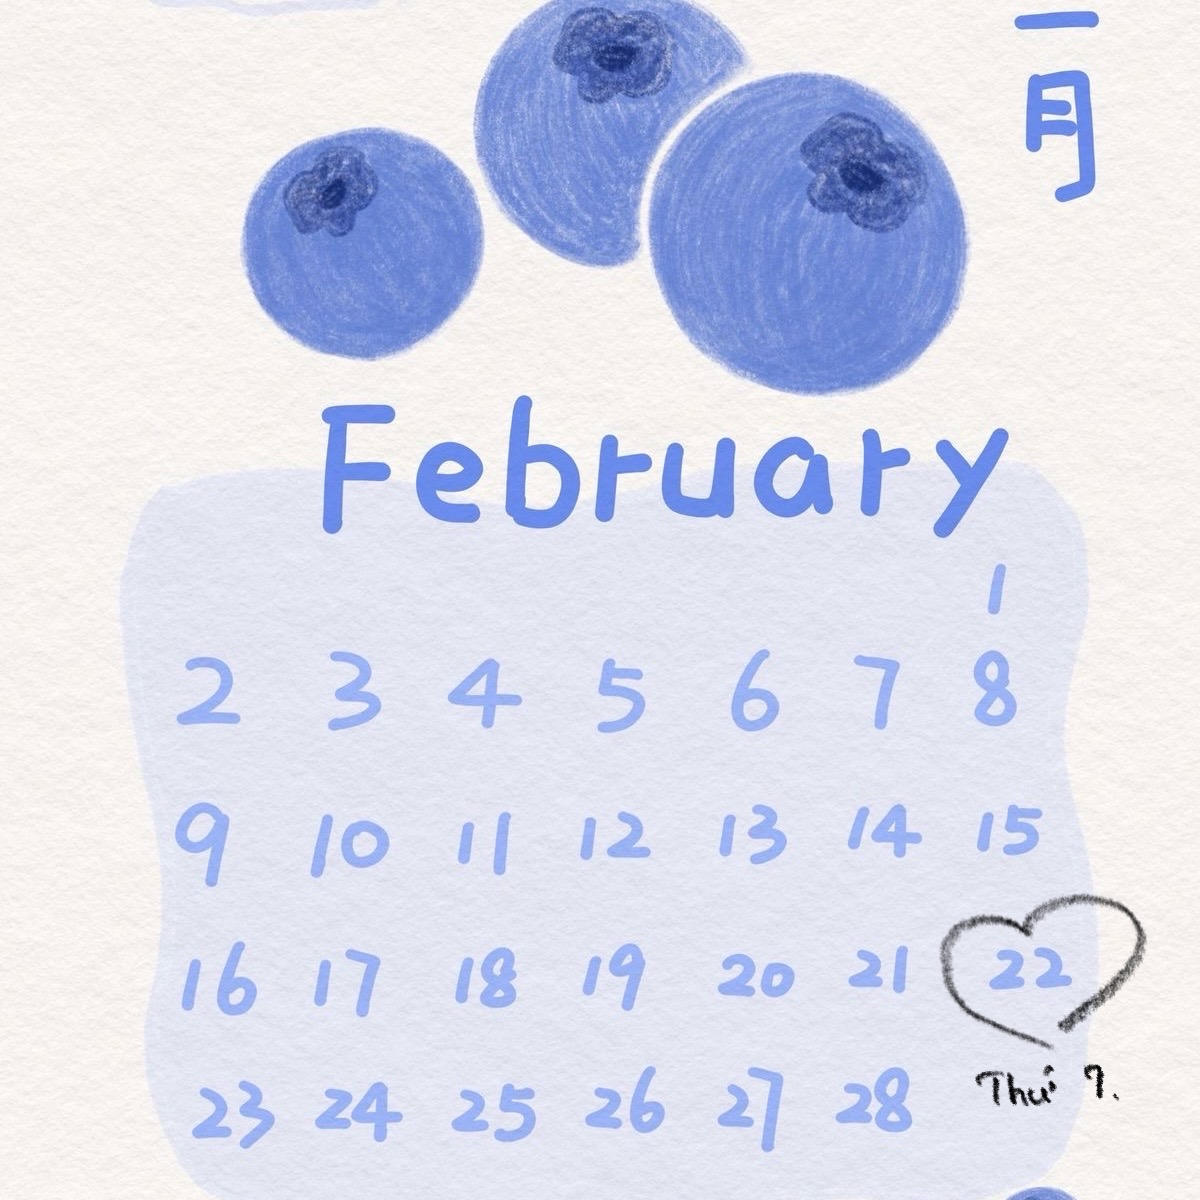 二月
February
1
2 3 4 5 6 7 8
9 10 11 12 13 14 15
16 17 18 19 20 21 22
23 24 25 26 27 28
Thứ 7.